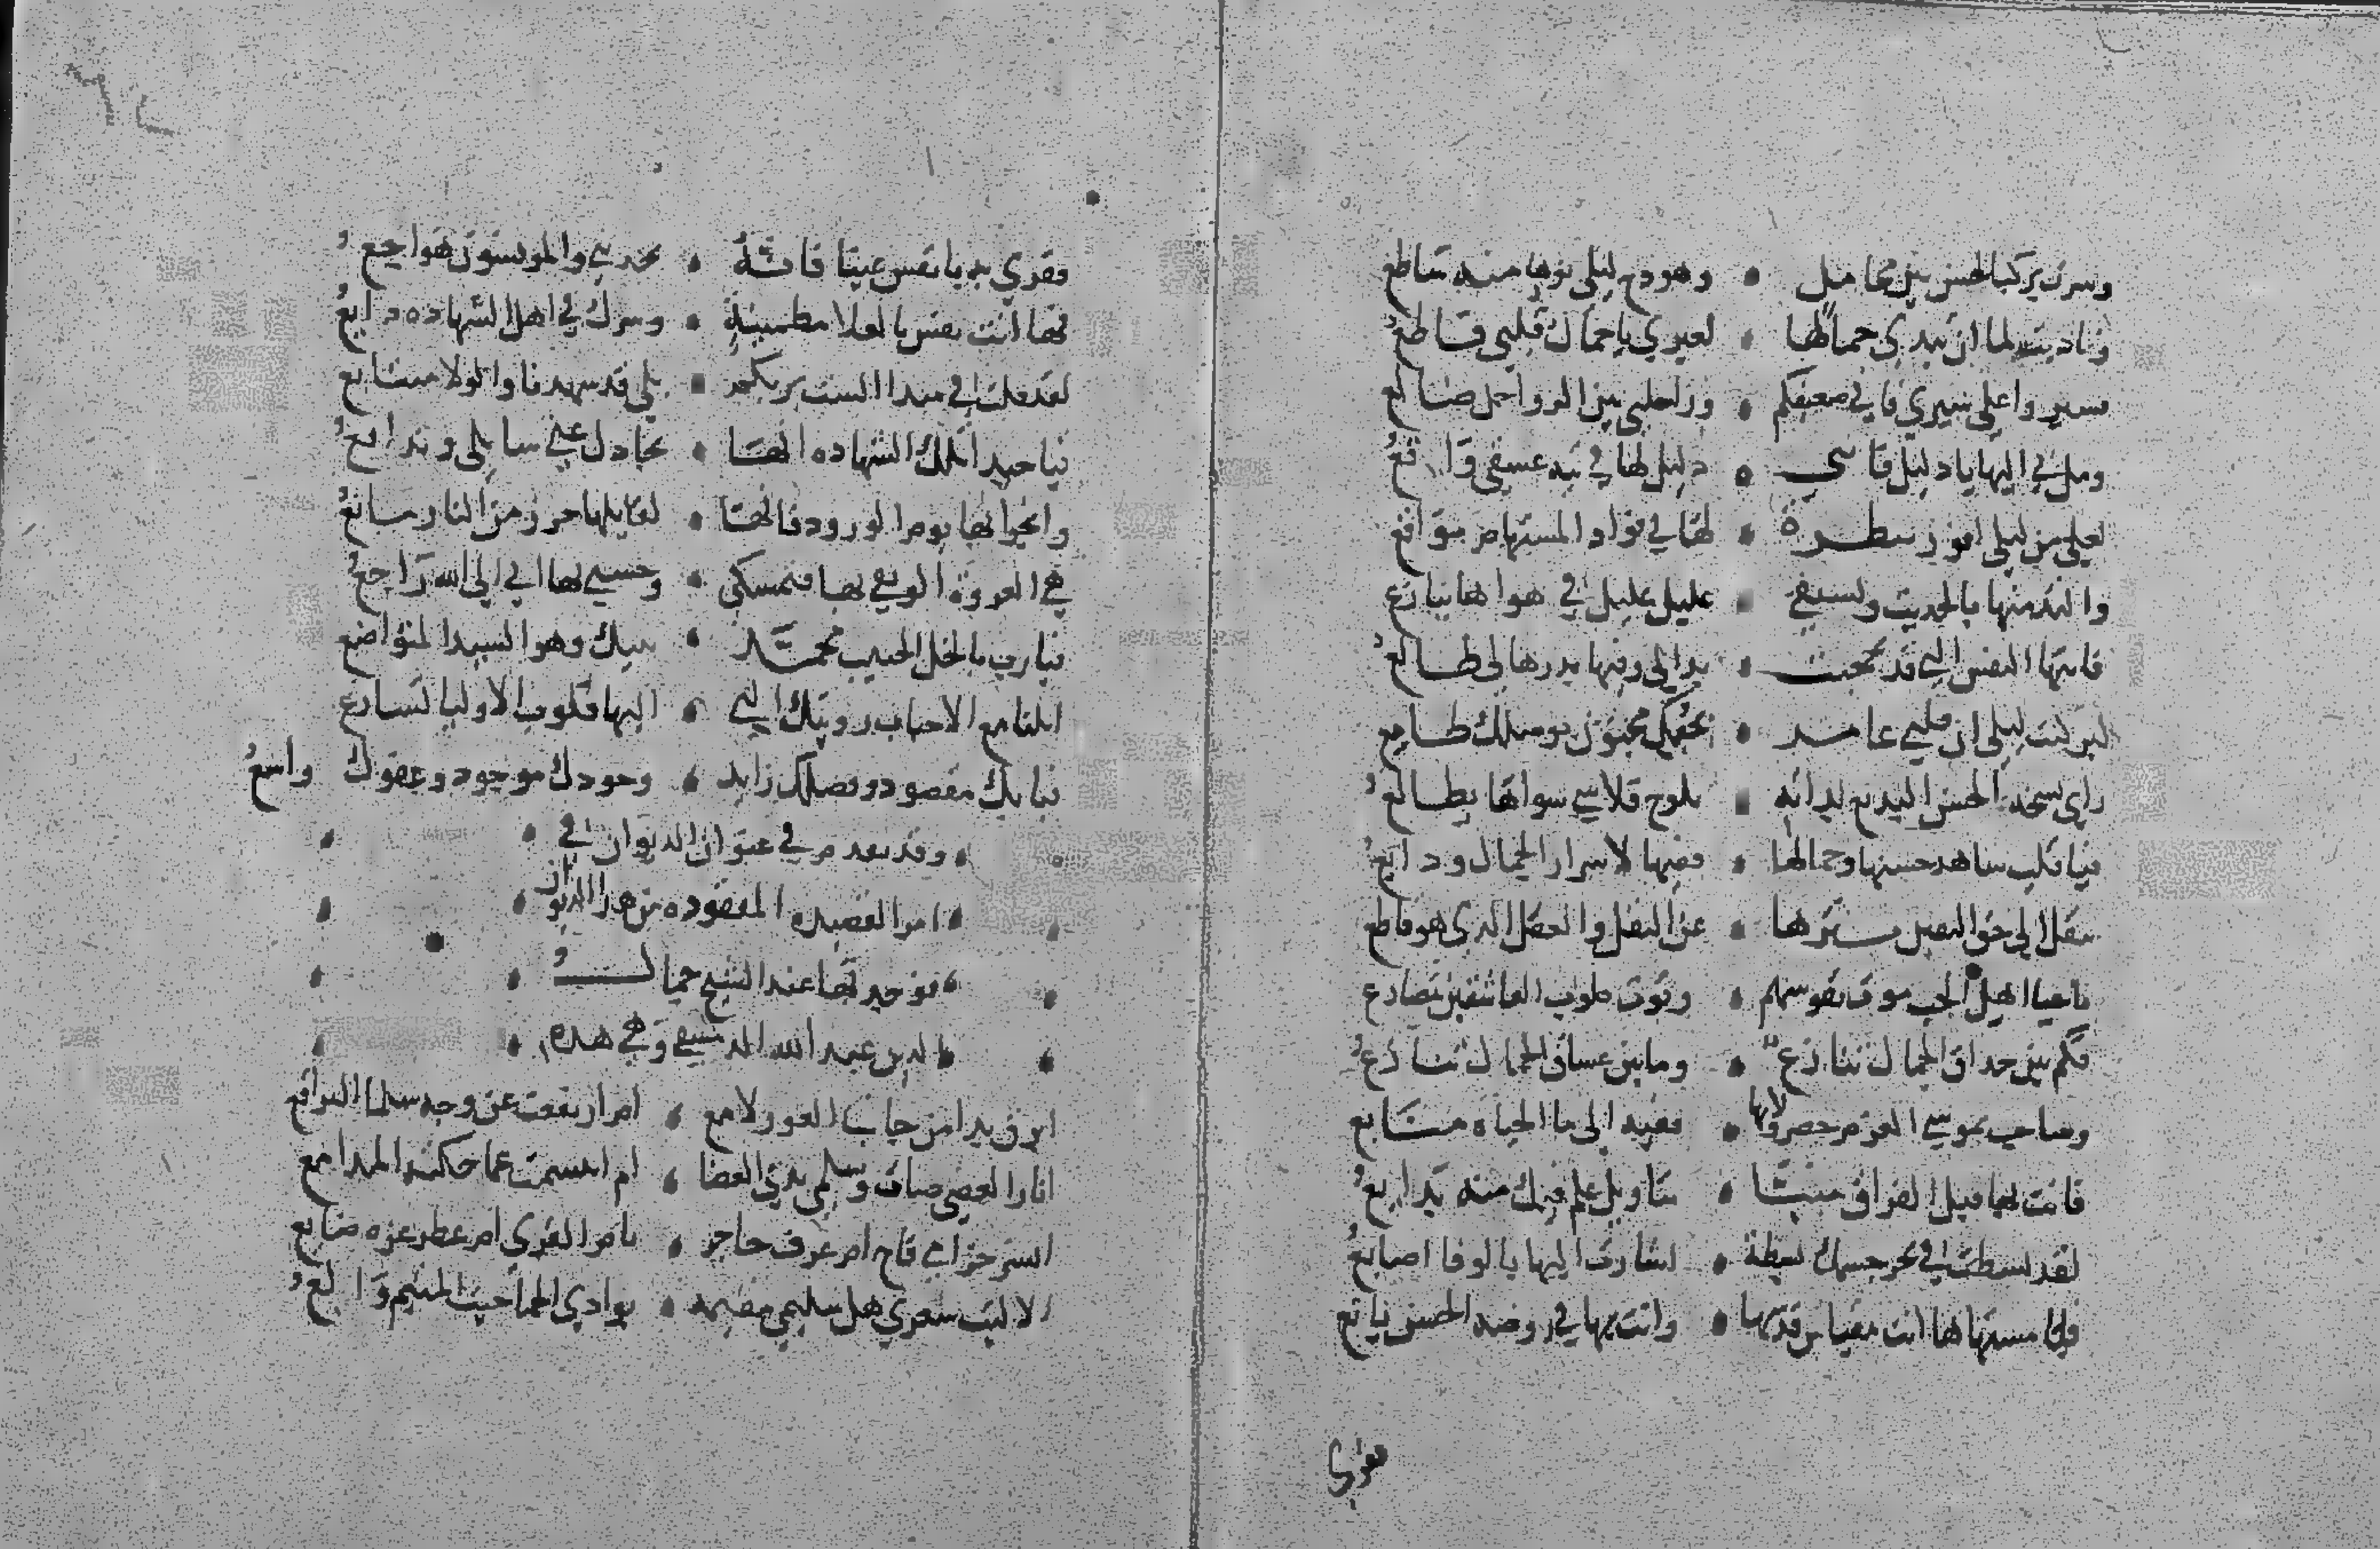 وسرت بركب الحسن بين محامل • وهودج ليلى نورها منه ساطع
وناديت لما ان تبدى جمالها • لعيري يا جمال قلبي قاطع
فسيروا على سيري فاني ضعيفكم • وراحلتي بين الرواحل ضالع
ومل بي اليها يا دليل فانني • دليل لها في تيه عشقي واقع
لعلي من ليلى افوز بنظرة • لها في فواد المستهام مواقع
والتذ منها بالحديث ويشتفي • غليل عليل في هواها ينازع
فايتها النفس التي قد تحجبت • بداتي وفيها بدرها لي طالع
لين كنت ليلى ان قلبي عامر • بحبك مجنون بوصلك طامع
راى نسخة الحسن البديع بذاته • تلوح فلا شي سواها يطالع
فيا قلب شاهد حسنها وجمالها • ففيها لاسرار الجمال ودايع
تنقل الى حق اليقين تنزها • عن النقل والعقل الذي هو قاطع
فاحيا اهل الحب موت نفوسهم • وقوت قلوب العاشقين تصارع
فكم بين حذاق الجمال تنازع • وما بين عشاق الجمال تنازع
وصاحب بموسى العزم خضر ولايها • ففيه الى ما الحياة منابع
فانت بها قبل الفراق منبئا • بتاويل علم فيك منه بدايع
لقد بسطت في بحر جسمك بسطة • اشارت اليها بالوفا اصابع
فيا مشتهاها انت مقياس قدسها • وانت بها في روضة الحسن يانع
فقري
فقري به يا نفس عينا فانه • يحدثني والمونسون هواجع
فها انت نفس بالعلا مطمينة • وسرك في اهل الشهادة ذايع
لقد قلت في مبدا الست بربكم • بلى قد شهدنا والولا متتابع
فيا حبذا تلك الشهادة انها • تجادل عني سايلي وتدافع
وانجو بها يوم الورود فانها • لقايلها حرز من النار مانع
هي العروة الوثقى بها فتمسكي • وحسبي بها اني الى الله راجع
فيا رب بالخل الحبيب محمد • نبيك وهو السيد المتواضع
انلنا مع الاحباب رويتك التي • اليها قلوب الاوليا تسارع
فبابك مقصود وفضلك زايد • وجودك موجود وعفوك واسع
وقد تقدم في عنوان الديوان الى
امر القصيدة المفقودة من هذا الديوان
فوجدتها عند الشيخ جمال
الدين عبد الله الدمشقي وهي هذه
ابرق بدا من جانب الغور لامع • ام ارتفعت عن وجه سلمى البراقع
انار الغضى ضات وسلمى بذي الغضا • ام ابتسمت عما حكته المدامع
انشر خزامى فاح ام عرف حاجر • بام القرى ام عطر عزة ضايع
الا ليت شعري هل سليمى مقيمة • بوادي الحما حيث المتيم والع